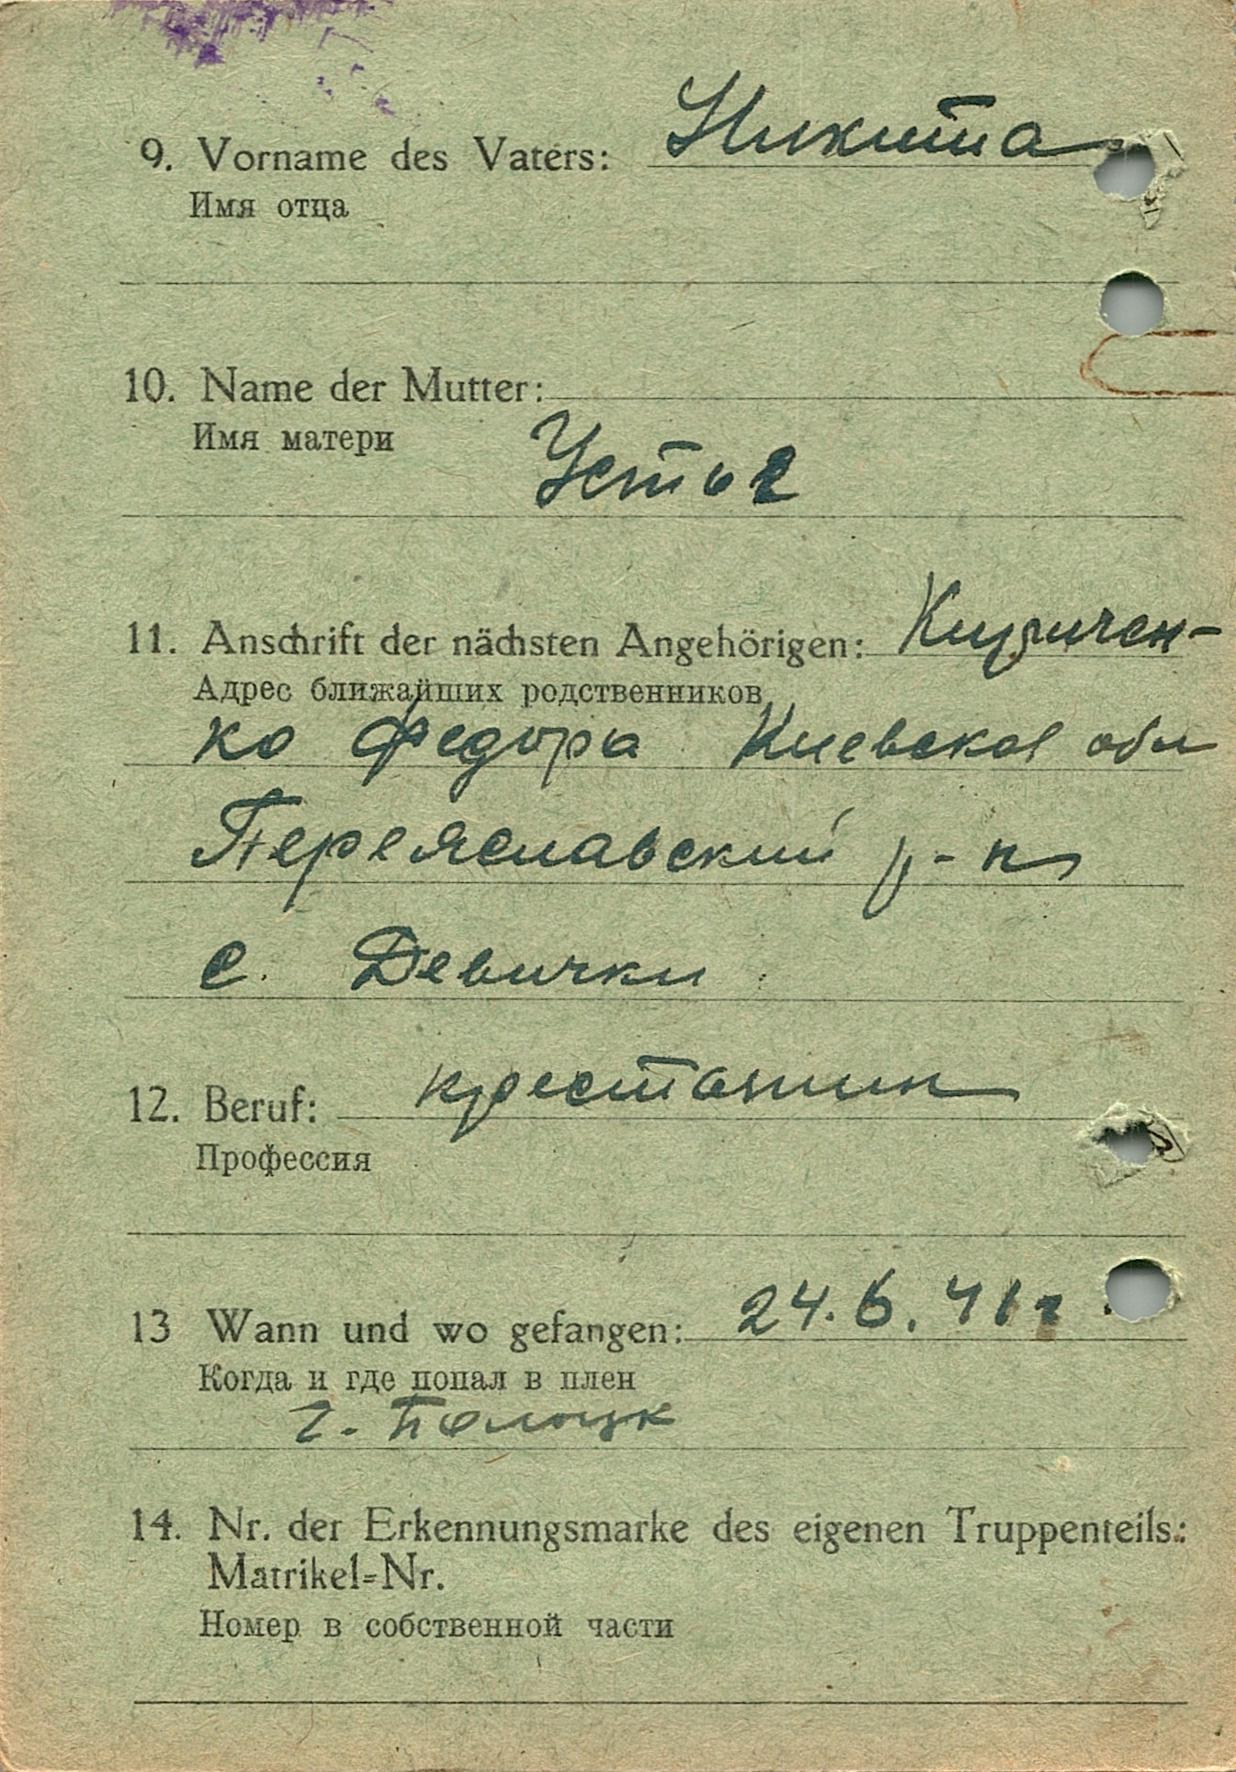 9. Vorname des Vaters: Никита
Имя отца
10. Name der Mutter:
Имя матери
Устья
11. Anschrift der nächsten Angehörigen: Киричен-
Адрес ближайших родственников
ко Федора Киевская обл
Переяславский р-н
с. Девички
12. Beruf: крестянин
Профессия
13 Wann und wo gefangen: 24.6.41г
Когда и где попал в плен
г. Полоцк
14. Nr. der Erkennungsmarke des eigenen Truppenteils.:
Matrikel-Nr.
Номер в собственной части